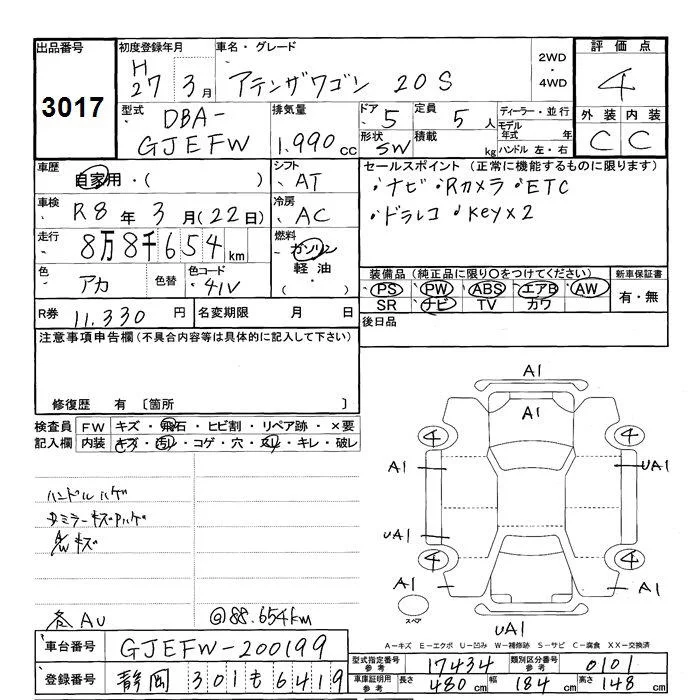 出品番号
3017
初度登録年月
H27 3月
車名・グレード
アテンザワゴン 20S
2WD
・
4WD
評価点
4
外装 内装
C C
型式
DBA-
GJEFW
排気量
1.990cc
ドア
5
定員
5人
形状
SW
積載
kg
ディーラー・並行
モデル年式 年
ハンドル 左・右
車歴
自家用・( )
シフト
AT
セールスポイント (正常に機能するものに限ります)
・ナビ・Rカメラ・ETC
・ドラレコ・Key×2
車検
R8年 3月(22日)
冷房
AC
走行
8万8千654km
燃料
ガソリン
軽油
( ・ )
色
アカ
色替
色コード
41V
装備品 (純正品に限り〇をつけてください)
PS PW ABS エアB AW
SR ナビ TV カワ
新車保証書
有・無
R券 11.330円
名変期限 月 日
後日品
注意事項申告欄 (不具合内容等は具体的に記入して下さい)
修復歴 有 〔箇所 〕
検査員
記入欄
FW キズ・飛石・ヒビ割・リペア跡・×要
内装 キズ・汚れ・コゲ・穴・スレ・キレ・破レ
ハンドルハゲ
A/Wキズ
各AU
@88.654km
A1
A1
4 4
A1 UA1
UA1 A1
4 4
A1 A1
スペア
UA1
A-キズ E-エクボ U-凹み W-補修跡 S-サビ C-腐食 XX-交換済
車台番号 GJEFW-200199
登録番号 静岡 301も6419
型式指定番号 参考 17434
類別区分番号 参考 0101
車庫証明用 参考 長さ 480cm 幅 184cm 高さ 148cm